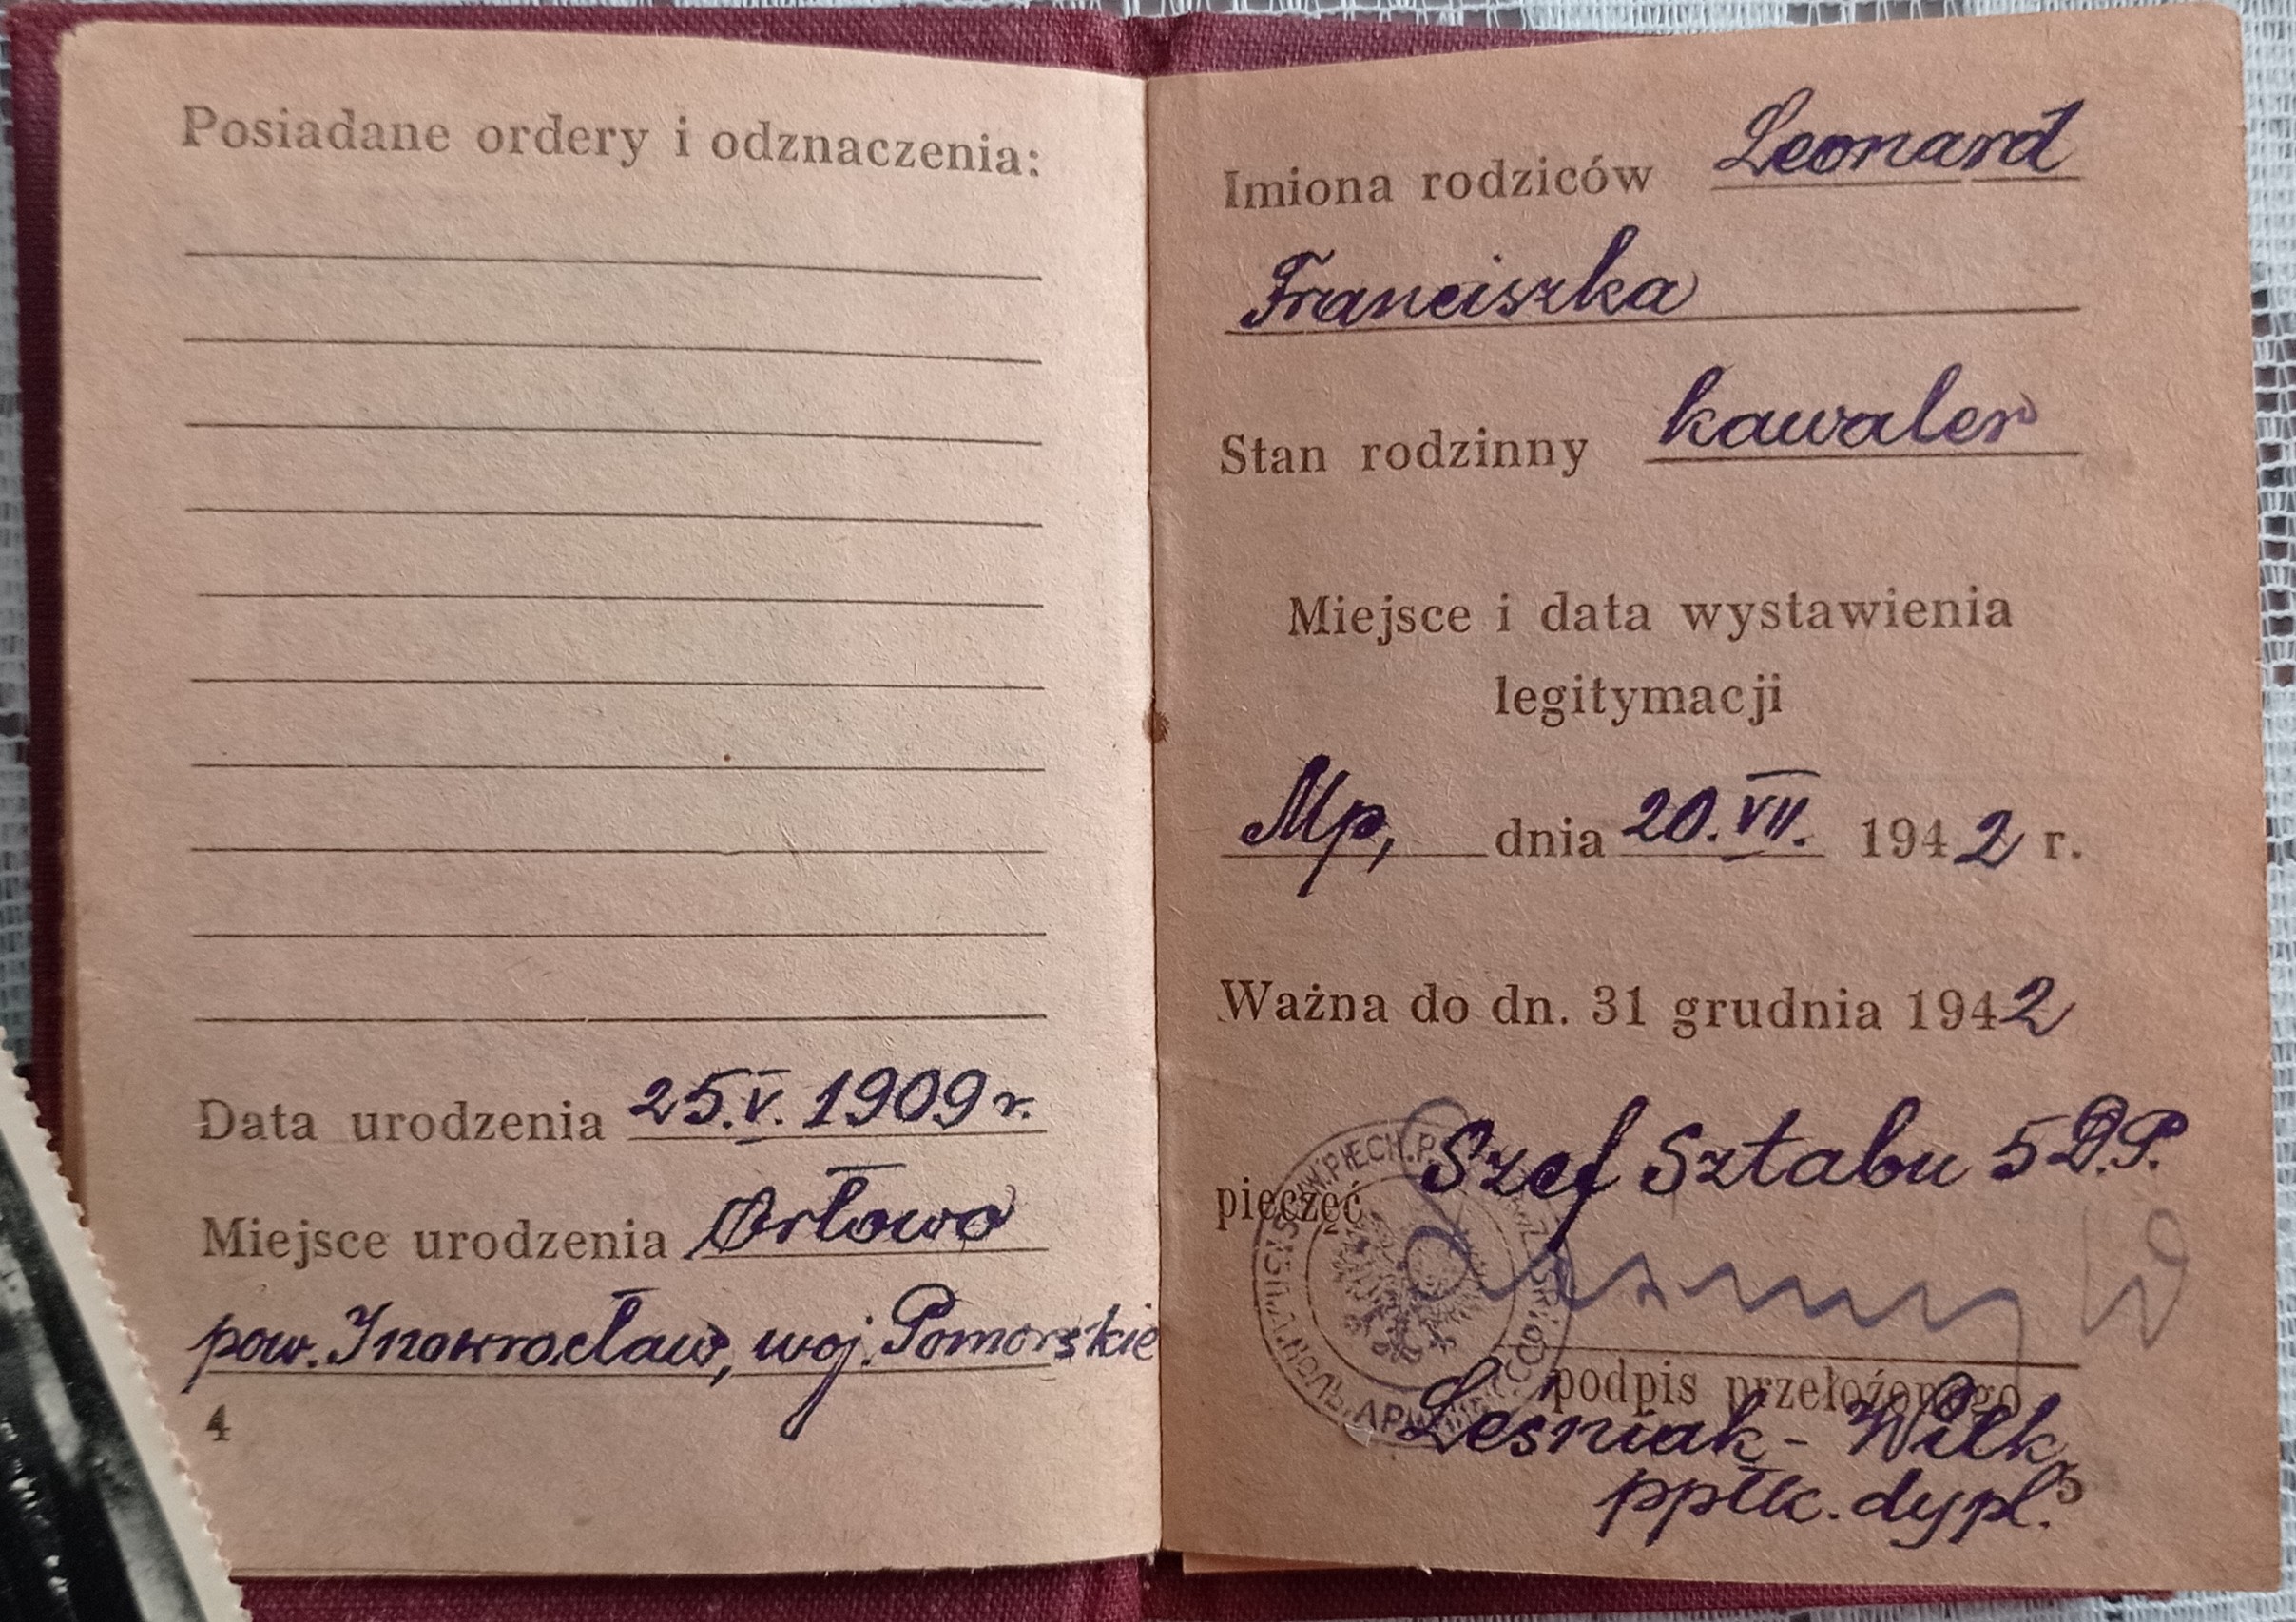 Posiadane ordery i odznaczenia:
Data urodzenia 25.V.1909 r.
Miejsce urodzenia Orłowo
pow. Inowrocław, woj. Pomorskie
4
Imiona rodziców Leonard
Franciszka
Stan rodzinny kawaler
Miejsce i data wystawienia
legitymacji
Mp, dnia 20.VII. 1942 r.
Ważna do dn. 31 grudnia 1942
Szef Sztabu 5 D.P.
pieczęć
podpis przełożonego
Leśniak-Wilk
ppłk. dypl.
5